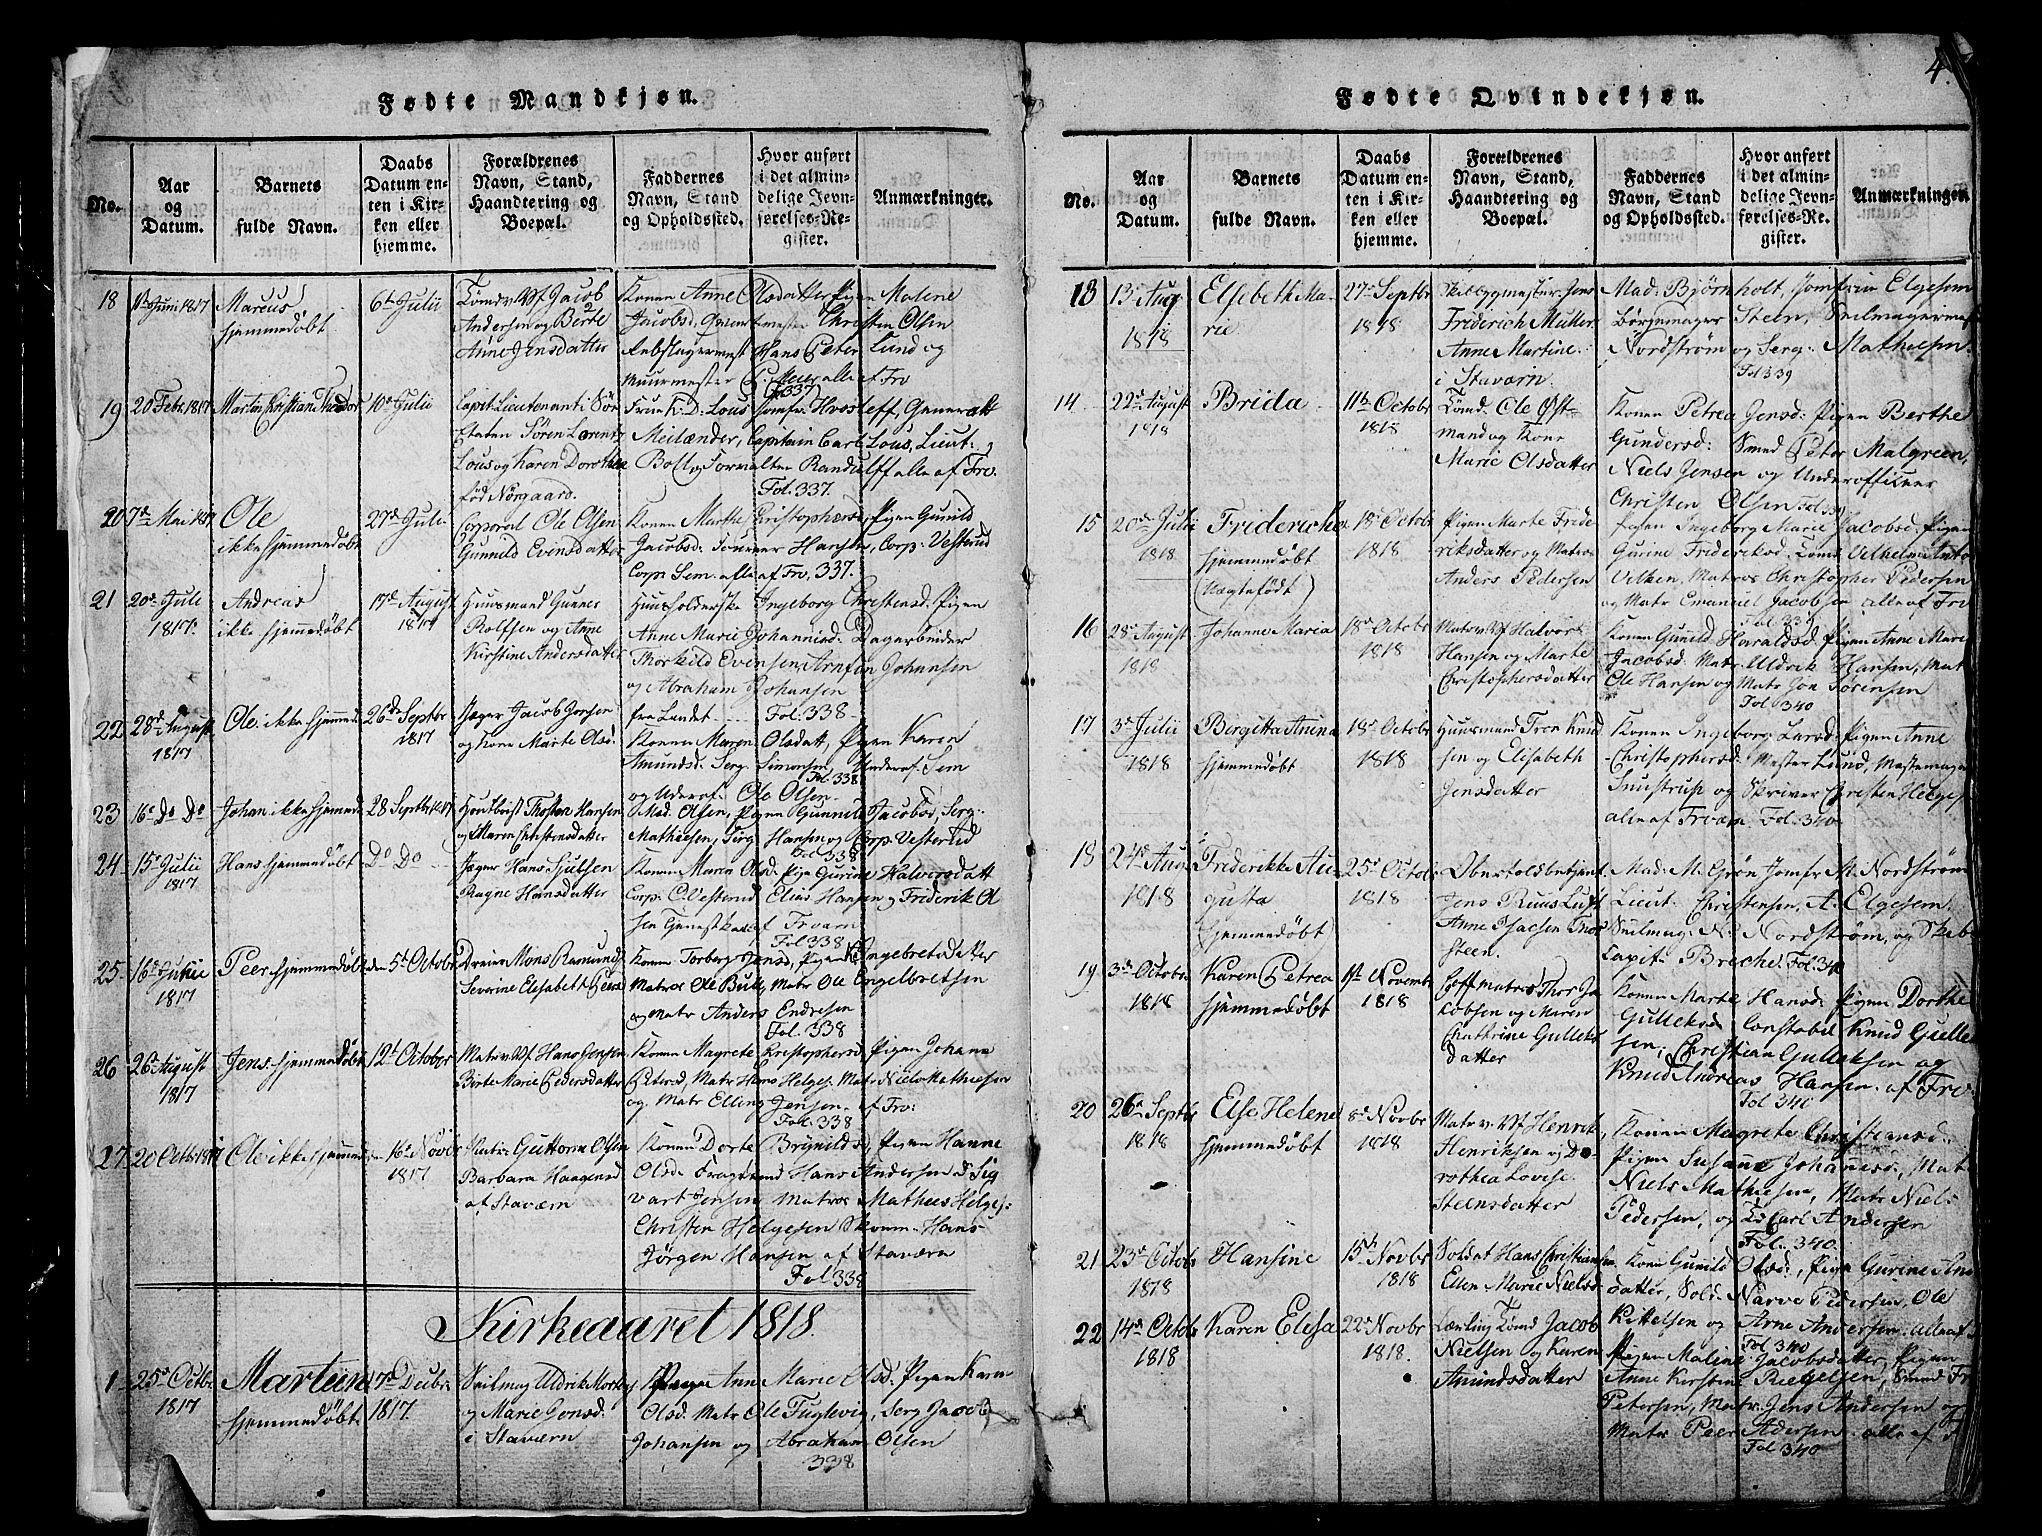 4
Fødte Mandkjøn.
No.
Aar og Datum.
Barnets fulde Navn.
Daabs Datum enten i Kirken eller hjemme.
Forældrenes Navn, Stand, Haandtering og Boepæl.
Faddernes Navn, Stand og Opholdssted.
Hvor anført i det almindelige Jevnførelses-Register.
Anmærkninger.
18
Juni 1817
Marcus
hjemmedøbt
6te Julii
Jacob
Andersen og Berte
Anne Jensdatter
Konen Anne Olsdatter Pigen Malene
Jacobsd. Christen Olsen
Hans Peter Lund og
Muurmester alle af Frv
Fol 337
19
20 Febr. 1817
Martin Christian Theodor
10de Julii
Capit. Lieutenant i Söe
Etaten Sören Lorentz
Lous og Karen Dorothea
fød Norgaard.
Frue K. D. Lous Jomfr Generalt
Meilænder, Capitain Carl Lous, Lieut:
og Forvalter Randulff alle af Frv.
Fol. 337.
20
7de Mai 1817
Ole
ikke hjemmedøbt
27de Julii
Corporal Ole Olsen
Gunnild Evinsdatter
Konen Marthe Christophersd, Pigen Gunild
Jacobsd. Hansen, Corp: Vesterud
Corp Sem. alle af Frv, 337.
21
20de Julii
1817.
Andreas
ikke hjemmedøbt
17de August
1817
Huusmand Gunner
Rolfsen og Anne
Kirstine Andersdatter
Huusholderske Ingeborg Christensd. Pigen
Anne Marie Johannisd. Dagarbeider
Thorkild Evensen, Johansen
og Abraham Johansen
fra Landet Fol. 338
22
28de August
1817
Ole ikke hjemmed.
26de Septbr
1817
Jæger Jacob Jensen
og Kone Marte Olsd.
Konen Maren Olsdatt, Pigen Karen
Amundsd. Serg. Simonsen, Underof. Sem
og Underof. Ole Olsen
Fol. 338
23
16de Do Do
Johan ikke hjemmed
28 Septbr 1817
Hansen
og Maren Christensdatter
Mad. Olsen, Pigen Gunnild Jacobsd, Serg:
Mathiesen, Serg Hansen og Corp: Vesterud
Fol 338
24
15de Julii
1817
Hans hjemmedøbt
Do Do
Jæger Hans
Ragne Hansdatter
Konen Maren Olsd. Pige Gurine Halvorsdatt
Corp: C. Vesterud Elias Hansen og Friderik Ol
sen af Frværn
Fol. 338
25
16de Julii
1817
Peer hjemmedøbt
den 5te Octobr
Dreier Mons Ramunds
Severine Elisabeth Peersd
Konen Torbor Jensd, Pigen K. Ingebretsdatter
Matros Ole Bull, Matr Ole Engelbretsen
og Matr Anders Endresen
Fol. 338
26
26de August
1817
Jens hjemmedøbt
12te October
Matr. v. Vf Hans Jensen
Birte Marie Pedersdatter
Konen Magrete Christophersd Pigen Johana
Petersd, Matr Hans Helges. Matr Niels Mathiesen
og Matr Elling Jensen af Frv:
Fol. 338
27
20 Octbr 1817
Ole ikke hjemmed
16de Novbr
1817
Matros Guttorm Olsen
Barbara Haagensd
af Staværn
Konen Dorte Brynilds, Pigen Hanne
Olsd. Hans Andersen Sig
vart Jensen Matros Mathies Helges:
Christen Helgesen Skom. Hans
Jørgen Hansen af Staværn
Fol 338
Kirkeaaret 1818.
1
25de Octbr
1817
Martin
hjemmedøbt
7de Decbr.
1817.
Seilmag Uldrik
og Marie Jensd.
i Staværn
Pigen Ann Marie Olsd. Pigen Karen
Olsd. Matr Ole Fuglevig, Serg Jacob
Johansen og Abraham Olsen
338
Fødte Qvindekjøn.
No.
Aar og Datum.
Barnets fulde Navn.
Daabs Datum enten i Kirken eller hjemme.
Forældrenes Navn, Stand, Haandtering og Boepæl.
Faddernes Navn, Stand og Opholdssted.
Hvor anført i det almindelige Jevnførelses-Register.
Anmærkninger
13
13de Aug
1818
Elsebeth Ma-
rie
27de Septbr
1818
Skibbygmester Jens
Friderich Müller
Anne Martine.
i Staværn.
Mad: Bjørnholt, Jomfrue Elgesem
Børgemager Steen, Seilmagermes
Nordstrøm og Serg: Mathesen.
Fol 339
14
22de August
1818
Brida
11te Octobr
1818
Tømd: Ole Øst-
mand og Kone
Marie Olsdatter
Konen Petrea Jensd: Pigen Berthe
Gundersd: Smed Peter Malgreen,
Niels Jensen og Underofficeer
Christen Olsen Fol 339
15
20de Julii
1818
Fridericha
hjemmedøbt
(Uægtefødt)
18de Octobr
1818
Pigen Marte Fride
riksdatter og Matros
Anders Pedersen
Pigen Ingeborg Marie Jacobsd, Pigen
Gurine Frideriksd. Tømd Vilhelm Anto
Velken, Matros Christopher Pedersen
og Matr Emanuel Jacobsen alle af Frv
Fol 339
16
28de August
1818
Johanne Maria
18de Octobr
1818
Matr v. Vf Halvor
Hansen og Marte
Christophersdatter
Konen Gunild Haraldsd. Pigen Anne Mari
Jacobsd. Matr Uldrik Hansen, Mat
Ole Hansen og Matr Jon Sørensen
Fol 340
17
3de Julii
1818
Bergitta Anina
hjemmedøbt
18de Octobr
1818
Huusmand Tron Knud
sen og Elisabeth
Jensdatter
Konen Ingeborg Larsd: Pigen Anne
Christophersd. Mester Lund, Mastemager
Snustrup og Skriver Christen Helges
alle af Frværn. Fol. 340.
18
24de Aug
1818
Friderikke Au-
gusta
hjemmedøbt
25de Octobr
1818
Overtoldbetjent
Jens Ruus
Anne Isachsen
Steen.
Mad. M. Grøn Jomfr M. Nordstrøm
Lieut. Christensen, A. Elgesem
Seilmag. N. Nordstrøm, og Skibs
Capit. Breche. Fol. 340
19
3de Octobr
1818
Karen Petrea
hjemmedøbt
1ste Novembr
1818
Matros Thor Ja
cobsen og Maren
Cathrine Gulleks
datter
Konen Marte Hansd. Pigen Dorthe
Gulleksd Constabel Knud Gulle
sen, Christian Gulleksen og
Knud Andreas Hansen af Frv.
Fol 340
20
26de Septbr
1818
Else Helene
hjemmedøbt
8de Novbr
1818
Matr v. Vf Henrik
Henriksen og Do-
rothea Lovise
Steensdatter
Konen Magrete Christiansd.
Pigen Susane Johanesd, Mat
Niels Mathiesen, Matr Niels
Pedersen, og Carl Andersen
Fol. 340.
21
23de Octobr
1818
Hansine
15de Novbr
1818
Soldat Hans Christiansen
Ellen Marie Nielsd
Konen Gunild Olsd:, Pigen Gurine
datter, Sold. Narve Pedersen, Ole
Kittelsen og Arne Andersen. alle af
Fol. 340
22
14de Octobr
1818
Karen Elisa
22de Novbr
1818.
Lærling Tømd Jacob
Nielsen og Karen
Amundsdatter
Pigen Maline Jacobsdatter, Pigen
Anne Kirstine Riegelsen, Smed Fr
Petersen, Matr. Jens Andersen og
Matr Peer Andersen. alle af F
Fol 340